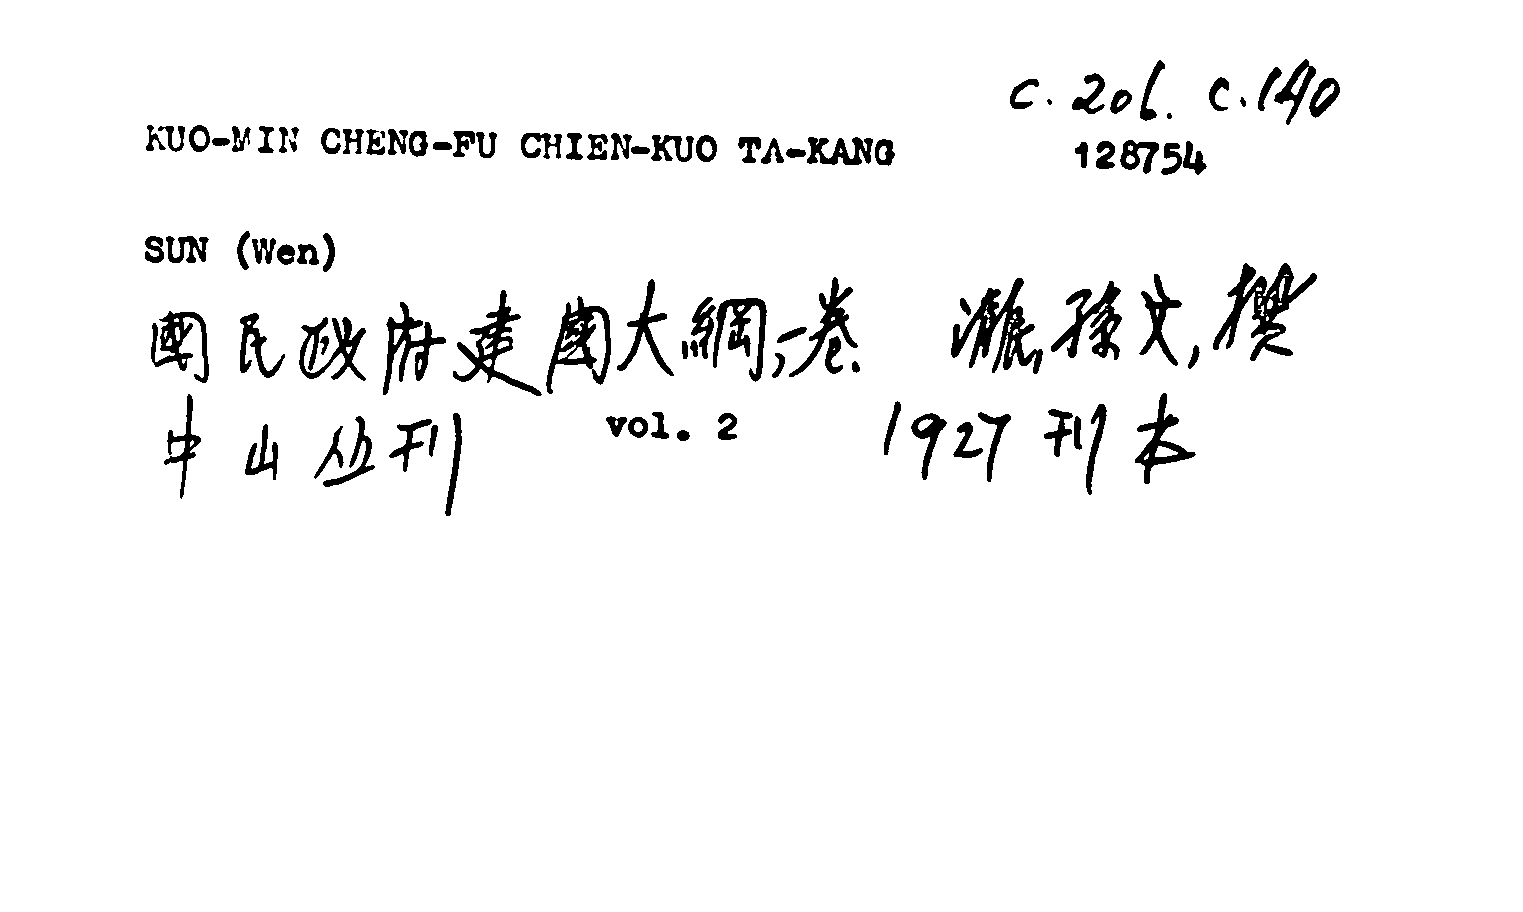 c. 206. c. 140
KUO-MIN CHENG-FU CHIEN-KUO TA-KANG 128754
SUN (Wen)
國民政府建國大綱,一卷. 孫文,撰
中山丛刊 vol. 2 1927刊本